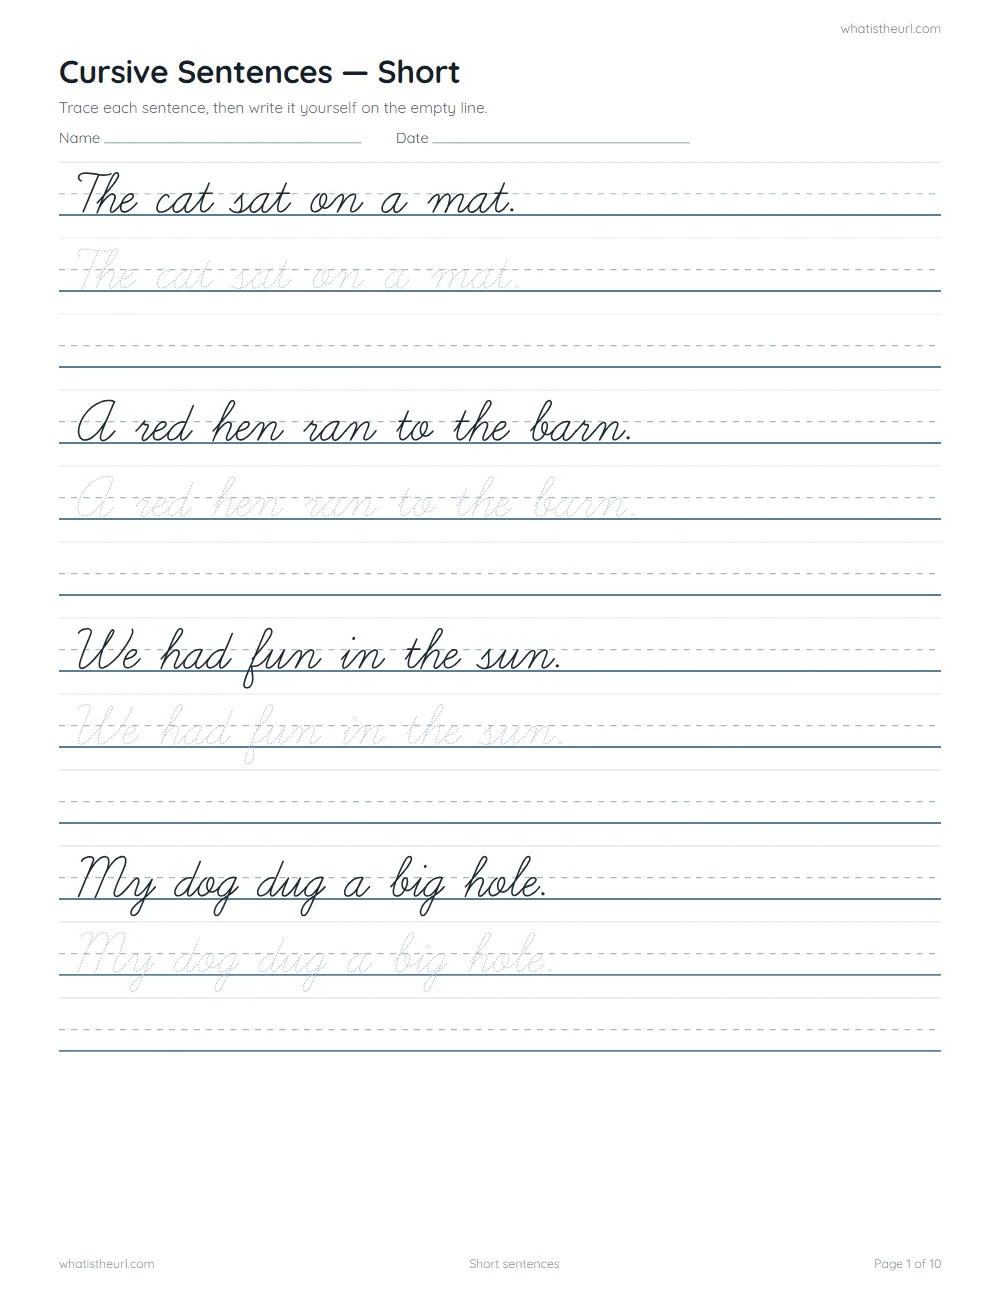 whatistheurl.com
Cursive Sentences — Short
Trace each sentence, then write it yourself on the empty line.
Name Date
The cat sat on a mat.
The cat sat on a mat.
A red hen ran to the barn.
A red hen ran to the barn.
We had fun in the sun.
We had fun in the sun.
My dog dug a big hole.
My dog dug a big hole.
whatistheurl.com Short sentences Page 1 of 10